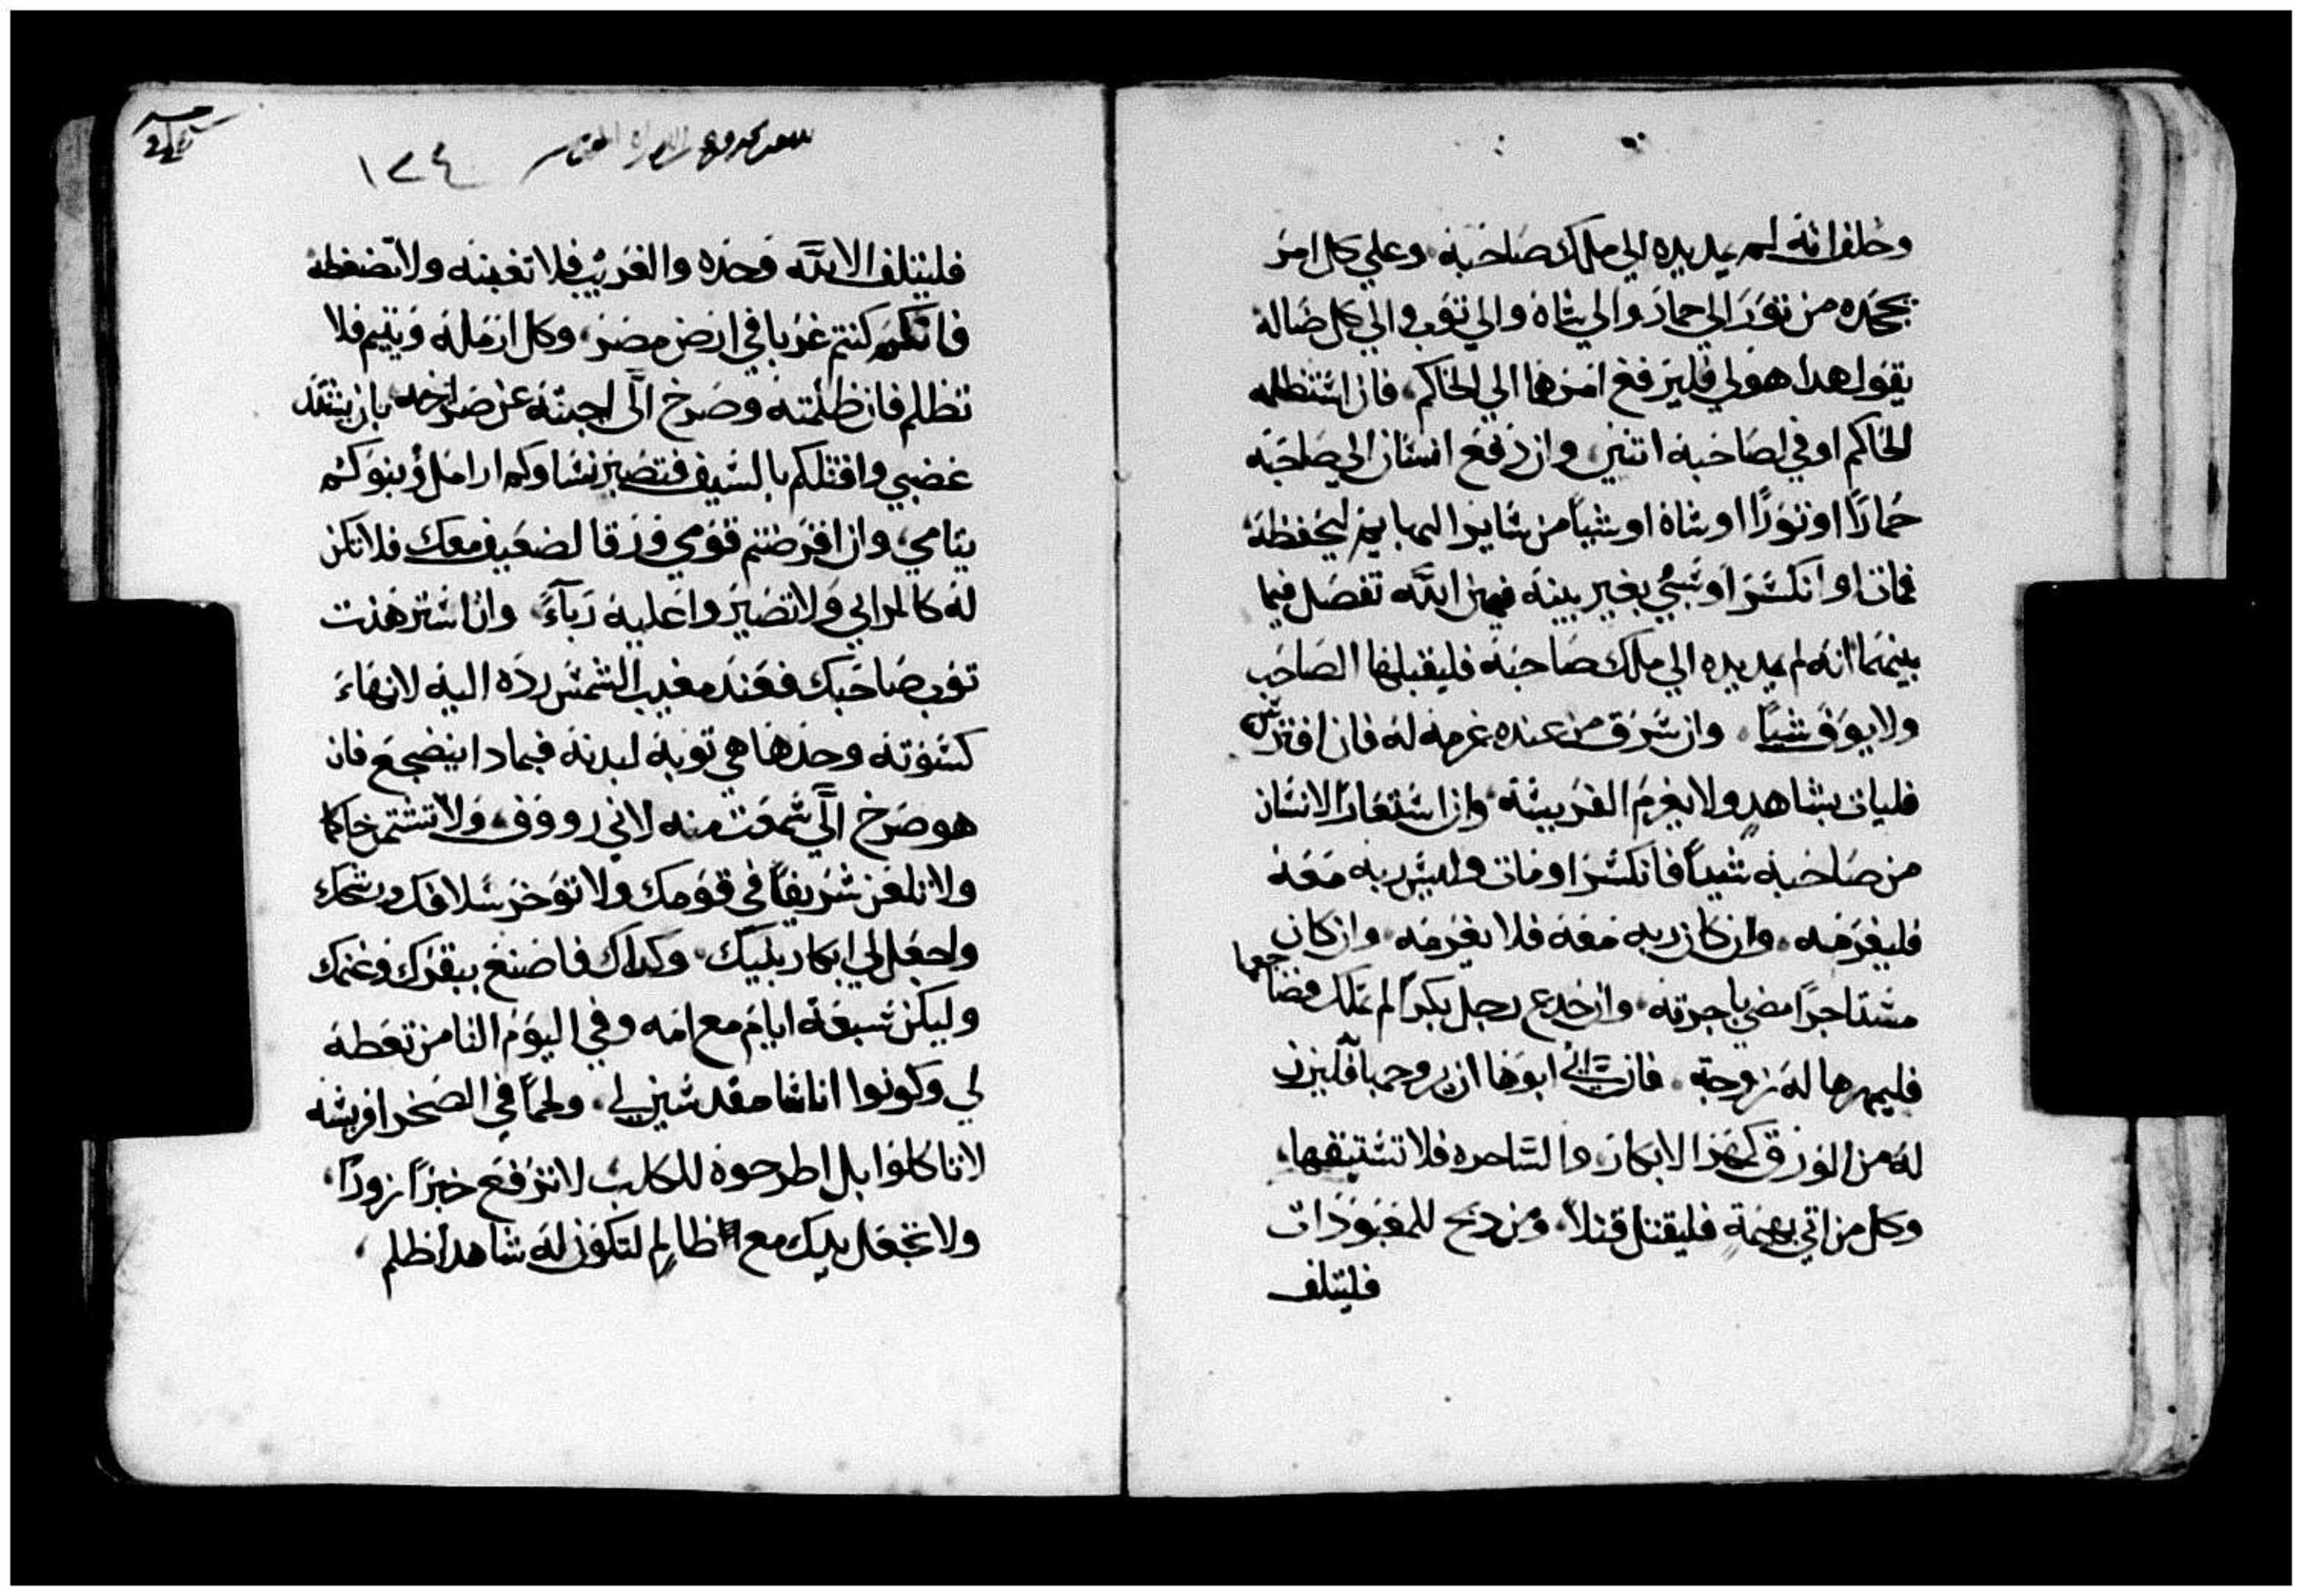 وحلف انه لم يمد يده الي ملك صاحبه وعلي كل امر
يجحده من تور الي حمار والي شاة والي توب والي كل ضاله
يقول هدا هو لي فليرفع امرهما الي الحاكم فان استظلمه
الحاكم اوفي لصاحبه اتنين وان دفع انسان الي صاحبه
حمارًا او تورًا او شاة او شيًا من ساير البهايم ليحفظه
فمات او انكسر او سُبي بغير بينه فيمين الله تفصل فيما
بينهما انه لم يمد يده الي ملك صاحبه فليقبلها الصاحب
ولا يوفَ شيًا وان سرق من عنده غرمه له فان افترس
فليات بشاهد ولا يغرم الفريسة وان استعار الانسان
من صاحبه شيًا فانكسر او مات وليس ربه معه
فليغرمه وان كان ربه معه فلا يغرمه وان كان
مستاجرًا مضي باجرته وان خدع رجل بكرًا لم تملك فضاجعها
فليمهرها له زوجة فان ابوها ان يزوجها فليزن
له من الورق كمهر الابكار والساحره فلا تستبقها
وكل من اتي بهيمة فليقتل قتلاً ومن دبح للمعبودات
فليتلف
١٣٤
فليتلف الا لله وحده والغريب فلا تغبنه ولا تضغطه
فانكم كنتم غربا في ارض مصر وكل ارمله ويتيم فلا
تظلم فان ظلمته وصرخ الَّى اجبته عن صراخه بان يشتد
غضبي واقتلكم بالسيف فتصير نساوكم ارامل وبنوكم
يتامي وان اقرضتم قومي ورقا لضعيف معك فلا تكن
له كالمرابي ولا تصيروا عليه رباءً وان استرهنت
توب صاحبك فعند مغيب الشمس رده اليه لانها
كسوته وحدها هي توبه لبدنه فبمادا ينضجع فان
هو صرخ الَّى سمعت منه لاني رووف ولا تشتم حاكما
ولا تلعن شريفًا في قومك ولا توخر سلافك ورسمك
واجعل لي ابكار بنيك وكداك فاصنع ببقرك وغنمك
وليكن سبعة ايام مع امه وفي اليوم التامن تعطه
لي وكونوا اناسًا مقدسين لي ولحمًا في الصحرا فريسه
لا تاكلوا بل اطرحوه للكلب لا ترفع خبرًا زورًا
ولا تجعل يدك مع ظالم لتكون له شاهد ظلم